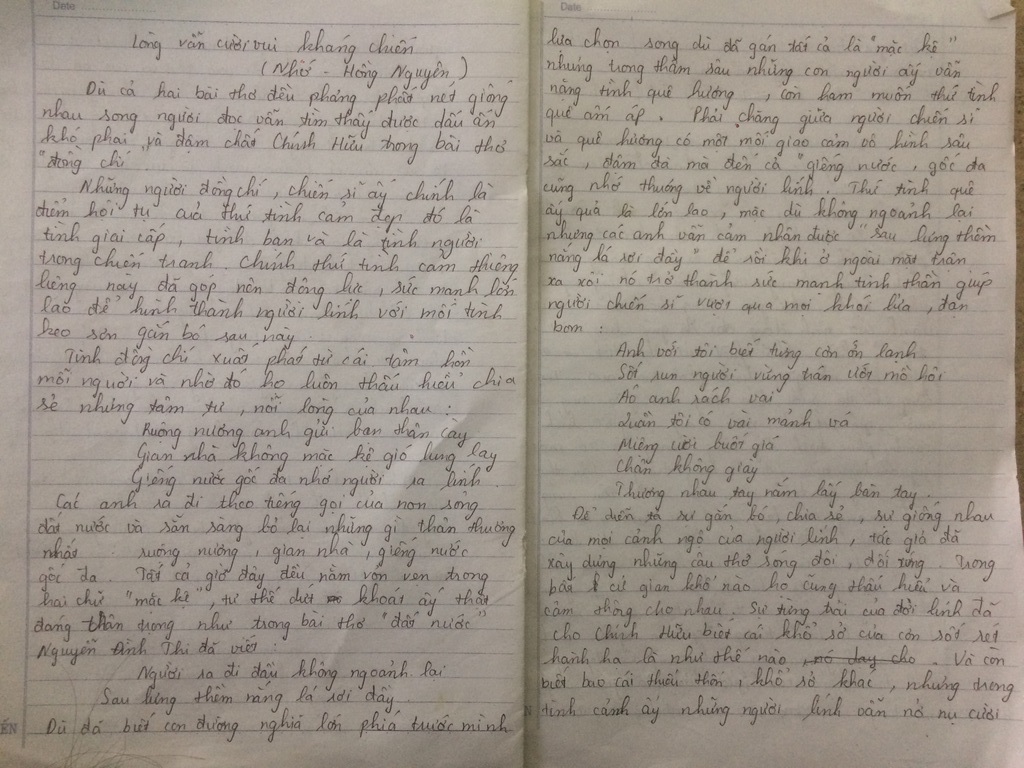 Date
Lòng vẫn cười vui kháng chiến
(Nhớ - Hồng Nguyên)
Dù cả hai bài thơ đều phảng phất nét giống
nhau song người đọc vẫn tìm thấy được dấu ấn
khó phai và đậm chất Chính Hữu trong bài thơ
"đồng chí"
Những người đồng chí, chiến sĩ ấy chính là
điểm hội tụ của thứ tình cảm đẹp đó là
tình giai cấp, tình bạn và là tình người
trong chiến tranh. Chính thứ tình cảm thiêng
liêng này đã góp nên động lực, sức mạnh lớn
lao để hình thành người lính với mối tình
keo sơn gắn bó sau này.
Tình đồng chí xuất phát từ cái tâm hồn
mỗi người và nhờ đó họ luôn thấu hiểu chia
sẻ những tâm tư, nỗi lòng của nhau:
Ruộng nương anh gửi bạn thân cày
Gian nhà không mặc kệ gió lung lay
Giếng nước gốc đa nhớ người ra lính.
Các anh ra đi theo tiếng gọi của non sông
đất nước và sẵn sàng bỏ lại những gì thân thương
nhất: ruộng nương, gian nhà, giếng nước
gốc đa. Tất cả giờ đây đều nằm vỏn vẹn trong
hai chữ "mặc kệ", tư thế dứt khoát ấy thật
đáng thân trọng như trong bài thơ "đất nước"
Nguyễn Đình Thi đã viết:
Người ra đi đầu không ngoảnh lại
Sau lưng thềm nắng lá rơi đầy.
Dù đã biết con đường nghĩa lớn phía trước mình
Date
lựa chọn song dù đã gán tất cả là "mặc kệ"
nhưng trong thẳm sâu những con người ấy vẫn
nặng tình quê hương, còn ham muốn thứ tình
quê ấm áp. Phải chăng giữa người chiến sĩ
và quê hương có một mối giao cảm vô hình sâu
sắc, đậm đà mà đến cả "giếng nước, gốc đa
cũng nhớ thương về người lính. Thứ tình quê
ấy quả là lớn lao, mặc dù không ngoảnh lại
nhưng các anh vẫn cảm nhận được "sau lưng thềm
nắng lá rơi đầy" để rồi khi ở ngoài mặt trận
xa xôi nó trở thành sức mạnh tinh thần giúp
người chiến sĩ vượt qua mọi khói lửa, đạn
bom:
Anh với tôi biết từng cơn ớn lạnh
Sốt run người vừng trán ướt mồ hôi
Áo anh rách vai
Quần tôi có vài mảnh vá
Miệng cười buốt giá
Chân không giày
Thương nhau tay nắm lấy bàn tay.
Để diễn tả sự gắn bó, chia sẻ, sự giống nhau
của mọi cảnh ngộ của người lính, tác giả đã
xây dựng những câu thơ song đôi, đối xứng. Trong
bất cứ gian khổ nào họ cũng thấu hiểu và
cảm thông cho nhau. Sự từng trải của đời lính đã
cho Chính Hữu biết cái khổ sở của cơn sốt rét
hành hạ là như thế nào. Và còn
biết bao cái thiếu thốn, khổ sở khác, nhưng trong
tình cảnh ấy những người lính vẫn nở nụ cười